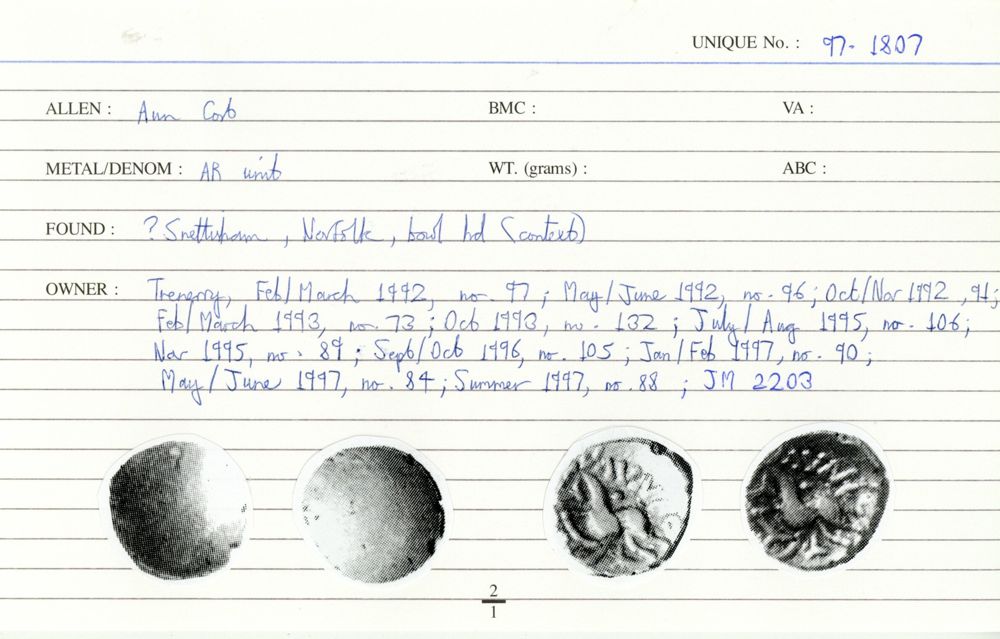 UNIQUE No. : 97- 1807
ALLEN : Ann Corb BMC : VA :
METAL/DENOM : AR unit WT. (grams) : ABC :
FOUND : ? Snettisham, Norfolk, bowl hd (context)
OWNER : Trenerry, Feb/March 1992, no. 97 ; May/June 1992, no. 96 ; Oct/Nov 1992, 91;
Feb/March 1993, no. 73 ; Oct 1993, no. 132 ; July/Aug 1995, no. 106 ;
Nov 1995, no. 89 ; Sept/Oct 1996, no. 105 ; Jan/Feb 1997, no. 90 ;
May/June 1997, no. 84 ; Summer 1997, no. 88 ; JM 2203
2
1